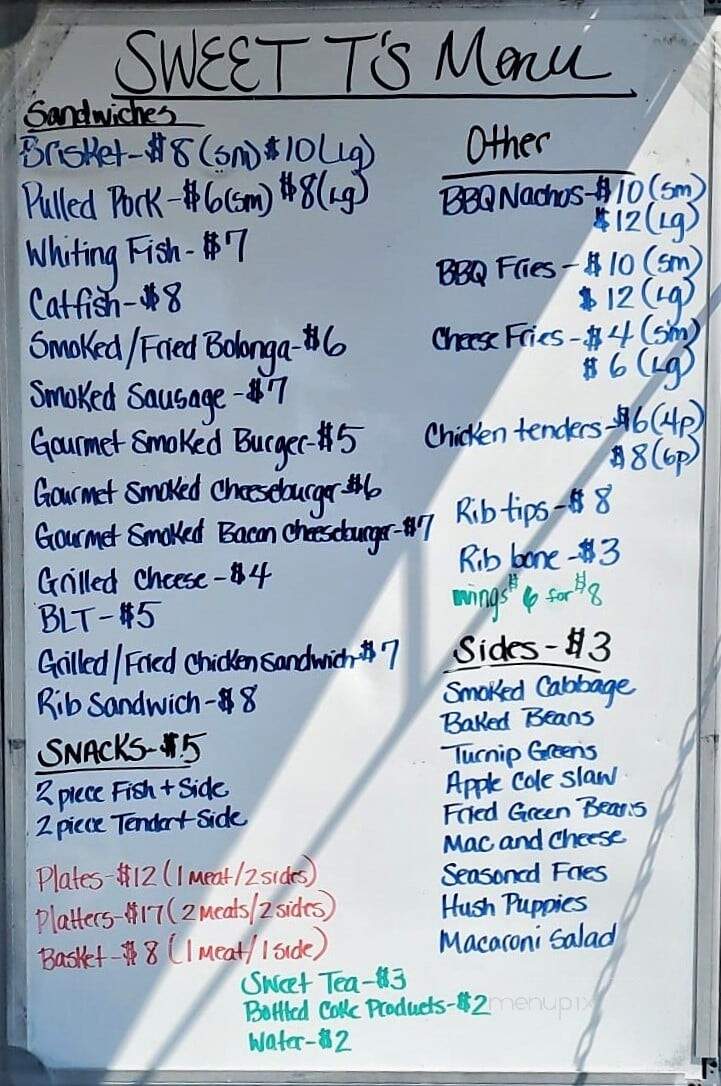 SWEET T'S Menu
Sandwiches
Brisket-$8(sm)$10(Lg)
Pulled Pork-$6(sm) $8(Lg)
Whiting Fish-$7
Catfish-$8
Smoked/Fried Bolonga-$6
Smoked Sausage-$7
Gourmet Smoked Burger-$5
Gourmet Smoked Cheeseburger-$6
Gourmet Smoked Bacon Cheeseburger-$7
Grilled Cheese-$4
BLT-$5
Grilled/Fried Chicken Sandwich-$7
Rib Sandwich-$8
SNACKS-$5
2 piece Fish + Side
2 piece Tender + Side
Plates-$12(1 meat/2 sides)
Platters-$17(2 meats/2 sides)
Basket-$8(1 meat/1 side)
Other
BBQ Nachos-$10(sm)
$12(Lg)
BBQ Fries-$10(sm)
$12(Lg)
Cheese Fries-$4(sm)
$6(Lg)
Chicken tenders-$6(4p)
$8(6p)
Rib tips-$8
Rib bone-$3
wings 6 for $8
Sides-$3
Smoked Cabbage
Baked Beans
Turnip Greens
Apple Cole Slaw
Fried Green Beans
Mac and Cheese
Seasoned Fries
Hush Puppies
Macaroni Salad
Sweet Tea-$3
Bottled Coke Products-$2
Water-$2
menupix